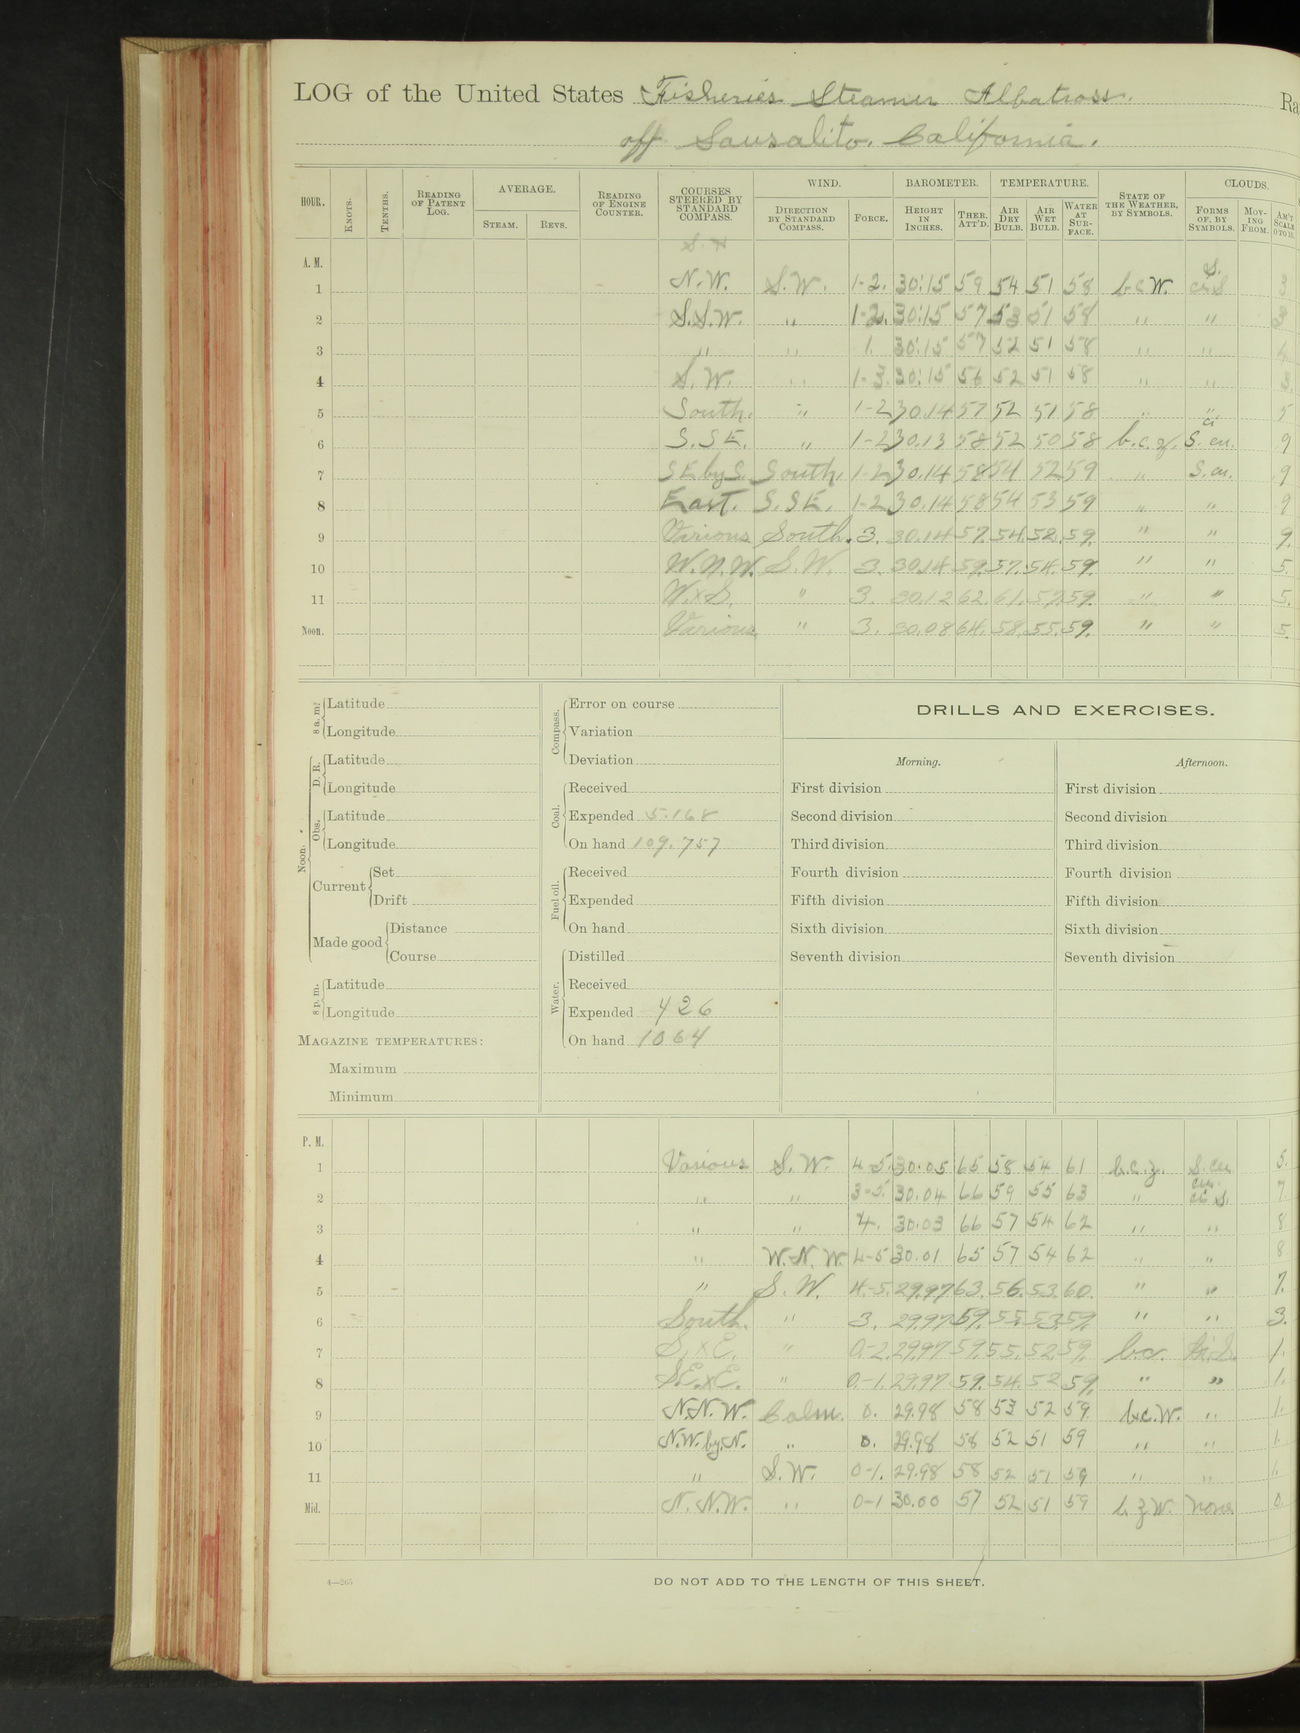 LOG of the United States Fisheries Steamer Albatross. Ra
off Sausalito. California.
HOUR. KNOTS. TENTHS. READING OF PATENT LOG. AVERAGE. STEAM. REVS. READING OF ENGINE COUNTER. COURSES STEERED BY STANDARD COMPASS. WIND. DIRECTION BY STANDARD COMPASS. FORCE. BAROMETER. HEIGHT IN INCHES. THER. ATT'D. TEMPERATURE. AIR DRY BULB. AIR WET BULB. WATER AT SURFACE. STATE OF THE WEATHER, BY SYMBOLS. CLOUDS. FORMS OF, BY SYMBOLS. MOVING FROM. AM'T SCALE 0 TO 10.
A. M.
1 N.W. S.W. 1-2. 30.15 59 54 51 58 b.c.W. S. ci.S 3
2 S.S.W. " 1-2. 30.15 57 53 51 58 " " 3
3 " " 1. 30.15 57 52 51 58 " "
4 S.W. " 1-3. 30.15 56 52 51 58 " " 3.
5 South. " 1-2 30.14 57 52 51 58 " " 5
6 S.S.E. " 1-2 30.13 58 52 50 58 b.c.z. ci S. cu. 9
7 SE by S. South. 1-2 30.14 58 54 52 59 " S. cu. 9
8 East. S.SE. 1-2 30.14 58 54 53 59 " " 9
9 Various South. 3. 30.14 57. 54. 52. 59. " " 9.
10 W.N.W. S.W. 3. 30.14 59. 57. 54. 59. " " 5.
11 W.xS. " 3. 30.12 62. 61. 57. 59. " " 5.
Noon. Various " 3. 30.08 64. 58. 55. 59. " " 5.
8 a. m. Latitude
Longitude
Noon. D. R. Latitude
Longitude
Obs. Latitude
Longitude
Current Set
Drift
Made good Distance
Course
8 p. m. Latitude
Longitude
MAGAZINE TEMPERATURES:
Maximum
Minimum
Compass. Error on course
Variation
Deviation
Coal. Received
Expended 5.168
On hand 109.757
Fuel oil. Received
Expended
On hand
Water. Distilled
Received
Expended 426
On hand 1064
DRILLS AND EXERCISES.
Morning.
First division
Second division
Third division
Fourth division
Fifth division
Sixth division
Seventh division
Afternoon.
First division
Second division
Third division
Fourth division
Fifth division
Sixth division
Seventh division
P. M.
1 Various S.W. 4-5. 30.05 65 58 54 61 b.c.z. S.cu 5.
2 " " 3-5. 30.04 66 59 55 63 " cu. ci S. 7.
3 " " 4. 30.03 66 57 54 62 " " 8
4 " W.N.W. 4-5 30.01 65 57 54 62 " " 8
5 " S.W. 4-5. 29.97 63. 56. 53. 60. " " 7.
6 South. " 3. 29.97 59. 55. 53. 59. " " 3.
7 S.xE. " 0-2. 29.97 59. 55. 52. 59. b.c. Ci.S. 1.
8 S.E.xE. " 0-1. 29.97 59. 54. 52 59. " " 1.
9 N.N.W. Calm. 0. 29.98 58 53 52 59. b.c.W. " 1.
10 N.W. by N. " 0. 29.98 58 52 51 59 " " 1.
11 " S.W. 0-1. 29.98 58 52 51 59 " " 1.
Mid. N.N.W. " 0-1 30.00 57 52 51 59 b.z.W. none 0.
4—265
DO NOT ADD TO THE LENGTH OF THIS SHEET.